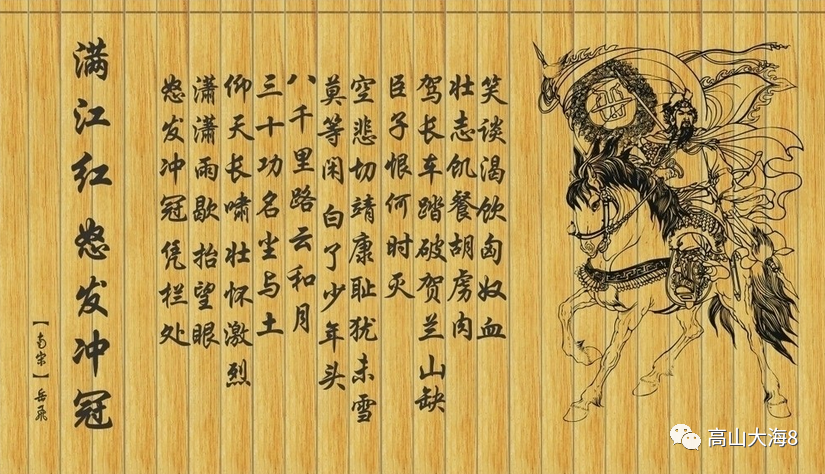 满江红 怒发冲冠
【南宋】岳飞
怒发冲冠凭栏处
潇潇雨歇 抬望眼
仰天长啸 壮怀激烈
三十功名尘与土
八千里路云和月
莫等闲 白了少年头
空悲切 靖康耻犹未雪
臣子恨何时灭
驾长车踏破贺兰山缺
壮志饥餐胡虏肉
笑谈渴饮匈奴血
高山大海8